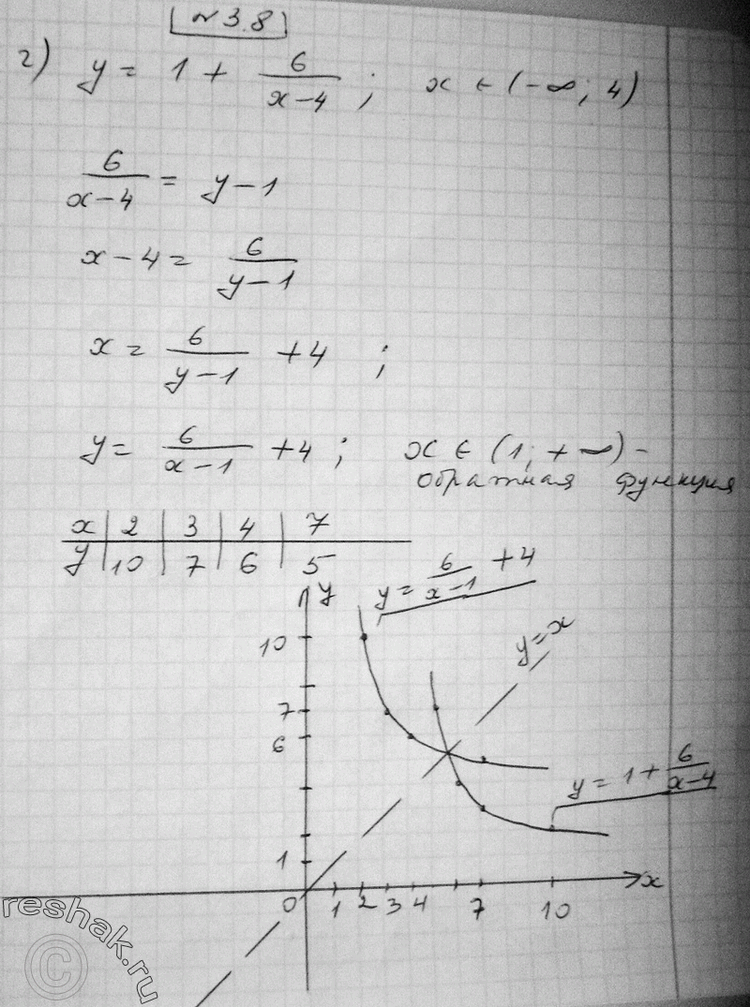 №3.8
г) y = 1 + 6/(x-4) ; x ∈ (-∞; 4)
6/(x-4) = y-1
x-4 = 6/(y-1)
x = 6/(y-1) +4 ;
y = 6/(x-1) +4 ; x ∈ (1; +∞) -
обратная функция
x | 2 | 3 | 4 | 7
y | 10 | 7 | 6 | 5
y = 6/(x-1) +4
y
y=x
10
7
6
y = 1 + 6/(x-4)
1
x
0 1 2 3 4 7 10
reshak.ru
©